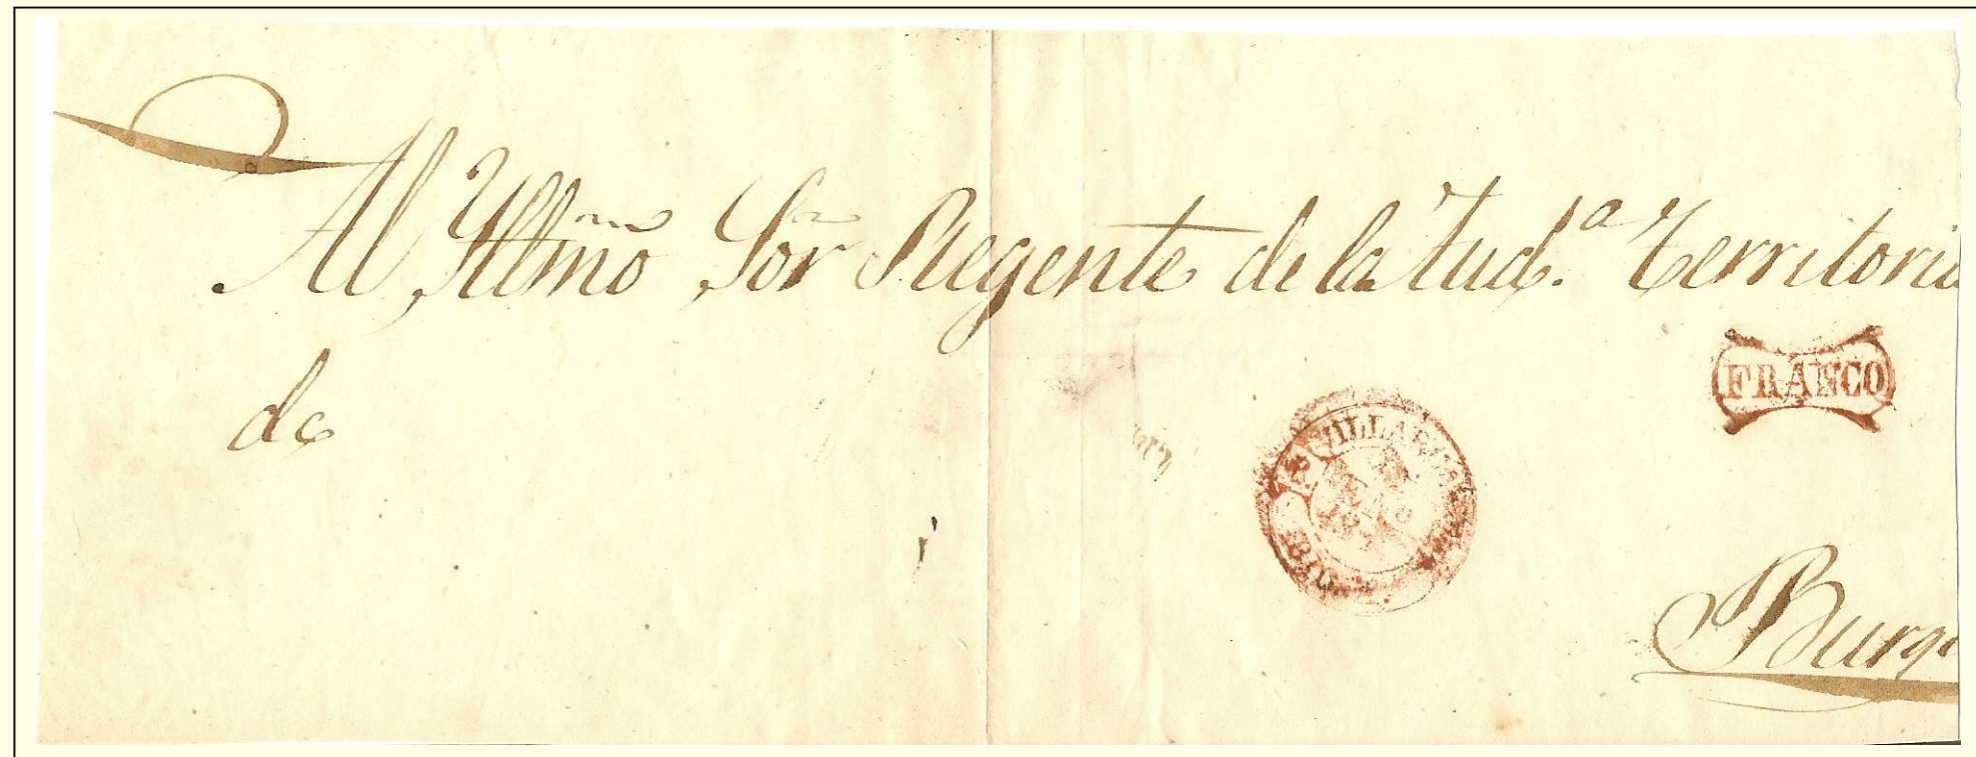 Al Yllmo Sor Regente de la Aud.ª Territoria
de
FRANCO
Burgo